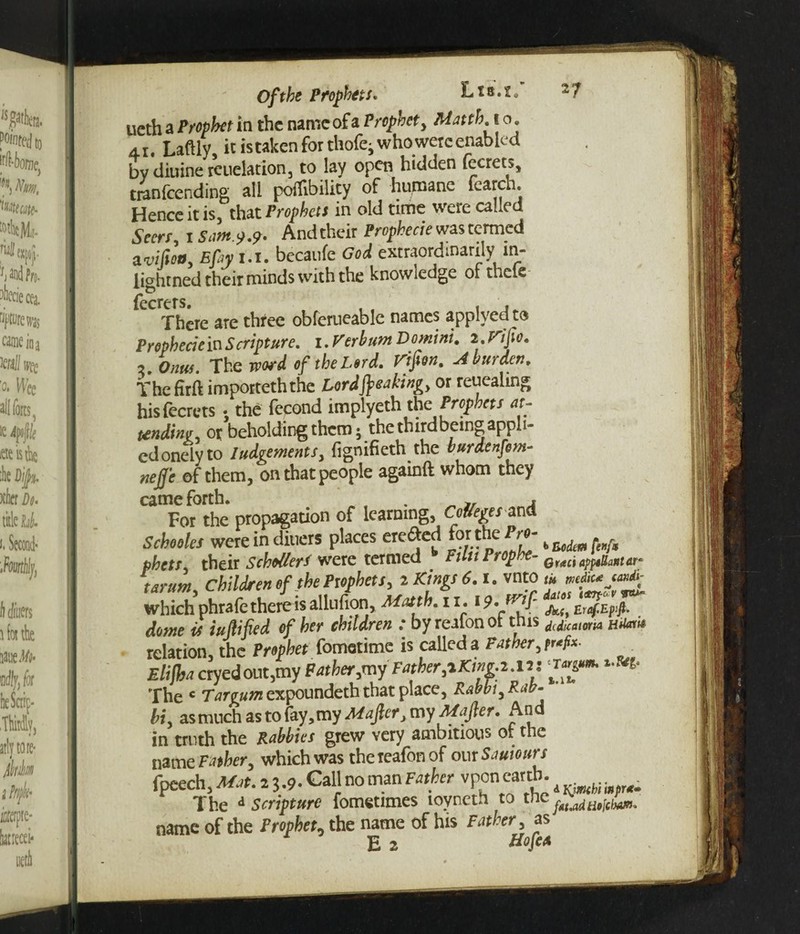 Of the Prophets. LIB.I. 27
ueth a Prophet in the name of a Prophet, Matth. 10.
41. Laſtly, it is taken for thoſe, who were enabled
by diuine reuelation, to lay open hidden ſecrets,
tranſcending all poſſibility of humane ſearch.
Hence it is, that Prophets in old time were called
Seers, 1 Sam.9.9. And their Prophecie was termed
a viſion, Eſay 1.1. becauſe God extraordinarily in-
lightned their minds with the knowledge of theſe
ſecrets.
There are three obſerueable names applyed to
Prophecie in Scripture. 1. Verbum Domini. 2. Viſio.
3. Onus. The word of the Lord. Viſion. A burden.
The firſt importeth the Lord ſpeaking, or reuealing
his ſecrets; the ſecond implyeth the Prophets at-
tending, or beholding them; the third being appli-
ed onely to Iudgements, ſignifieth the burdenſom-
neſſe of them, on that people againſt whom they
came forth.
For the propagation of learning, Colleges and
Schooles were in diuers places erected for the Pro-
phets, their Schollers were termed b Filii Prophe-
tarum, Children of the Prophets, 2 Kings 6. 1. vnto
which phraſe there is alluſion, Matth. 11. 19. Wiſ-
dome is iuſtified of her children : by reaſon of this
relation, the Prophet ſometime is called a Father,
Eliſha cryed out, my Father, my Father, 2 King. 2.12:
The c Targum expoundeth that place, Rabbi, Rab-
bi, as much as to ſay, my Maſter, my Maſter. And
in truth the Rabbies grew very ambitious of the
name Father, which was the reaſon of our Sauiours
ſpeech, Mat. 23.9. Call no man Father vpon earth.
The d Scripture ſometimes ioyneth to the
name of the Prophet, the name of his Father, as
E 2 Hoſea
b Eodem ſenſu
Græci appellant ar-
tis medicæ candi-
datos
Eraſ. Epiſt.
dedicatoria Hilario
præfix.
c Targum. 2. Reg.
2.12.
d Kimchi in præ-
fat. ad Hoſcham.
is gathers.
pointed to
irſt-borne,
Num.
to the Ma-
and Pro-
ophecie cea.
ripture was
came in a
erall wee
Wee
all ſorts,
Apoſtle
is the
the Diſpu-
other Do-
title Rab-
Second-
Fourthly,
diuers
for the
Mo-
for
he Scrip-
Thirdly,
arly to re-
Abraham
a Prophe-
interpre-
hat recei-
ueth